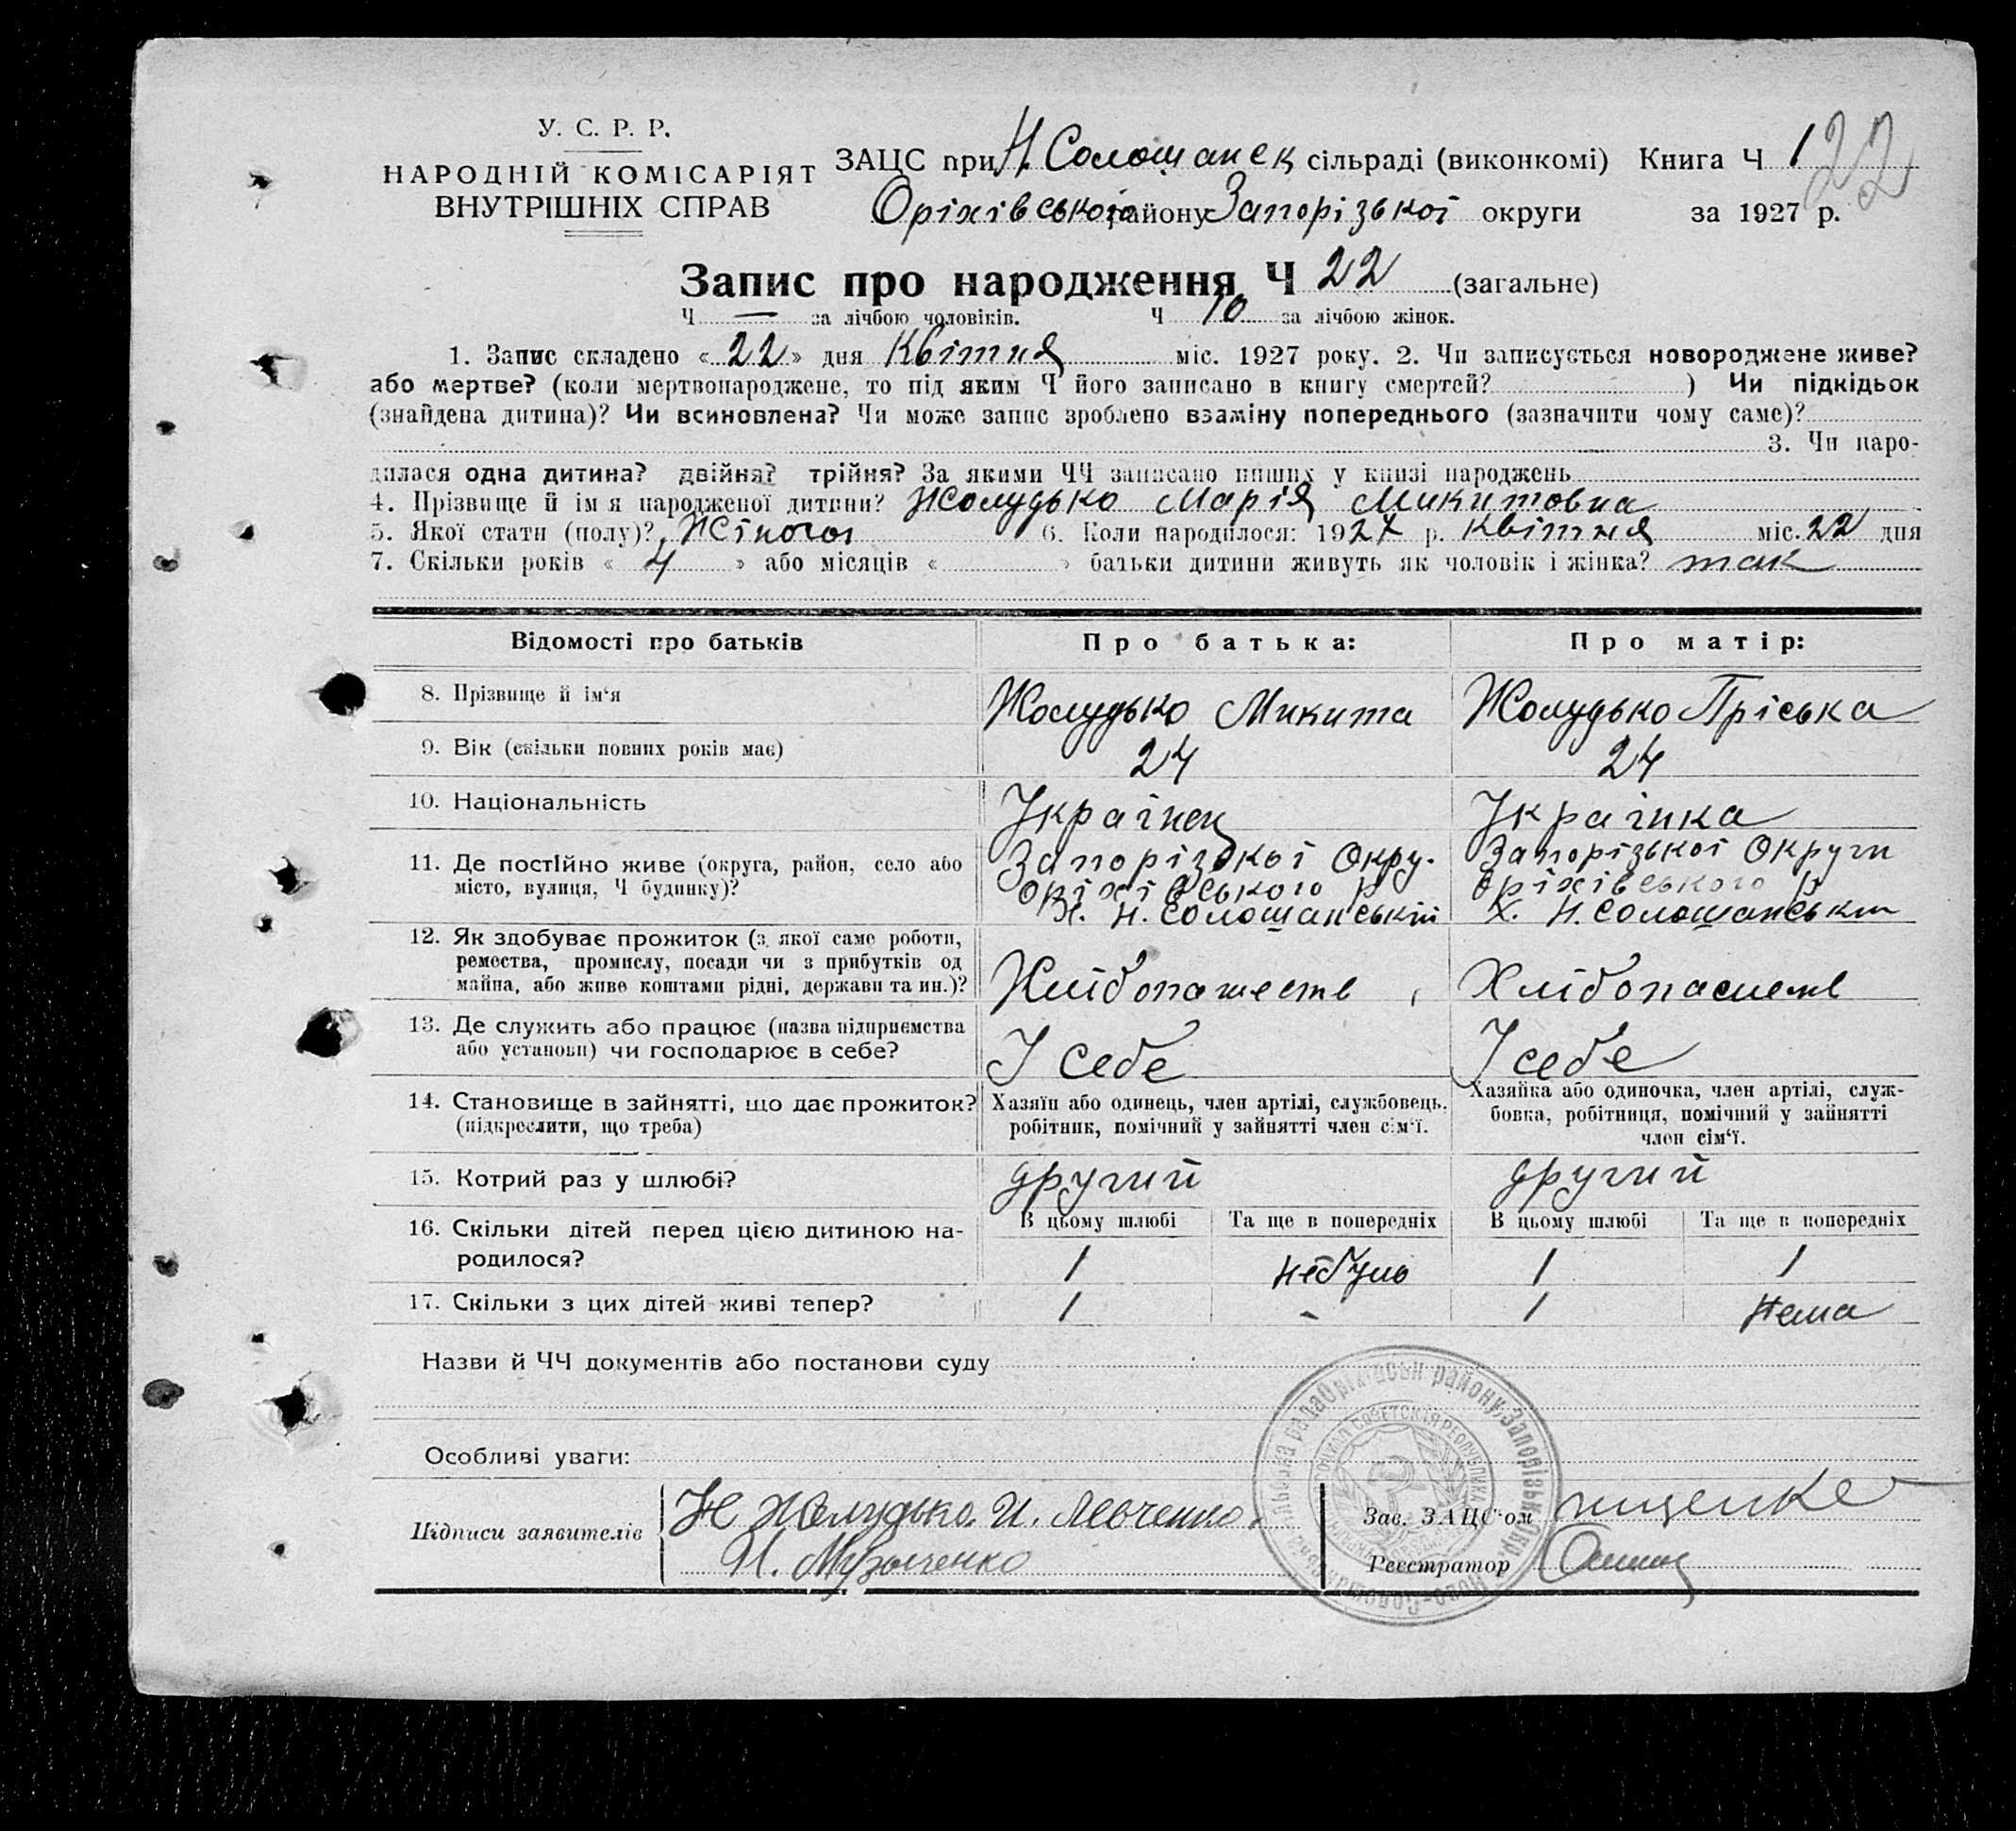 У. С. Р. Р.
НАРОДНІЙ КОМІСАРІЯТ
ВНУТРІШНІХ СПРАВ
ЗАЦС при Н. Солошанск сільраді (виконкомі) Книга Ч 1
122
Оріхівського району Запорізької округи за 1927 р.
Запис про народження Ч 22 (загальне)
Ч — за лічбою чоловіків. Ч 10 за лічбою жінок.
1. Запис складено « 22 » дня Квітня міс. 1927 року. 2. Чи записується новороджене живе?
або мертве? (коли мертвонароджене, то під яким Ч його записано в книгу смертей? ) Чи підкідьок
(знайдена дитина)? Чи всиновлена? Чи може запис зроблено взаміну попереднього (зазначити чому саме)?
3. Чи наро-
дилася одна дитина? двійня? трійня? За якими ЧЧ записано инших у книзі народжень
4. Прізвище й ім я народженої дитини? Жолудько Марія Микитовна
5. Якої стати (полу)? Жіночої 6. Коли народилося: 1927 р. Квітня міс. 22 дня
7. Скільки років « 4 » або місяців « » батьки дитини живуть як чоловік і жінка? так
Відомості про батьків Про батька: Про матір:
8. Прізвище й ім'я Жолудько Микита Жолудько Пріська
9. Вік (скільки повних років має) 24 24
10. Національність Українец Українка
11. Де постійно живе (округа, район, село або місто, вулиця, Ч будинку)?
Запорізької Окру.
Оріхівського р
Х. Н. Солошанський
Запорізької Округи
Оріхівського р
Х. Н. Солошанськи
12. Як здобуває прожиток (з якої саме роботи,
ремества, промислу, посади чи з прибутків од
майна, або живе коштами рідні, держави та ин.)?
Хлібопашеств Хлібопашеств
13. Де служить або працює (назва підприємства
або установи) чи господарює в себе?
У себе У себе
14. Становище в зайнятті, що дає прожиток?
(підкреслити, що треба)
Хазяїн або одинець, член артілі, службовець,
робітник, помічний у зайнятті член сім'ї.
Хазяйка або одиночка, член артілі, служ-
бовка, робітниця, помічний у зайнятті
член сім'ї.
15. Котрий раз у шлюбі? другий другий
В цьому шлюбі Та ще в попередніх В цьому шлюбі Та ще в попередніх
16. Скільки дітей перед цією дитиною на-
родилося?
1 небуло 1 1
17. Скільки з цих дітей живі тепер? 1 - 1 Нема
Назви й ЧЧ документів або постанови суду
Особливі уваги:
Підписи заявителів Н Жолудько. И. Левченко.
И. Музыченко
Зав. ЗАЦС'ом
Реєстратор